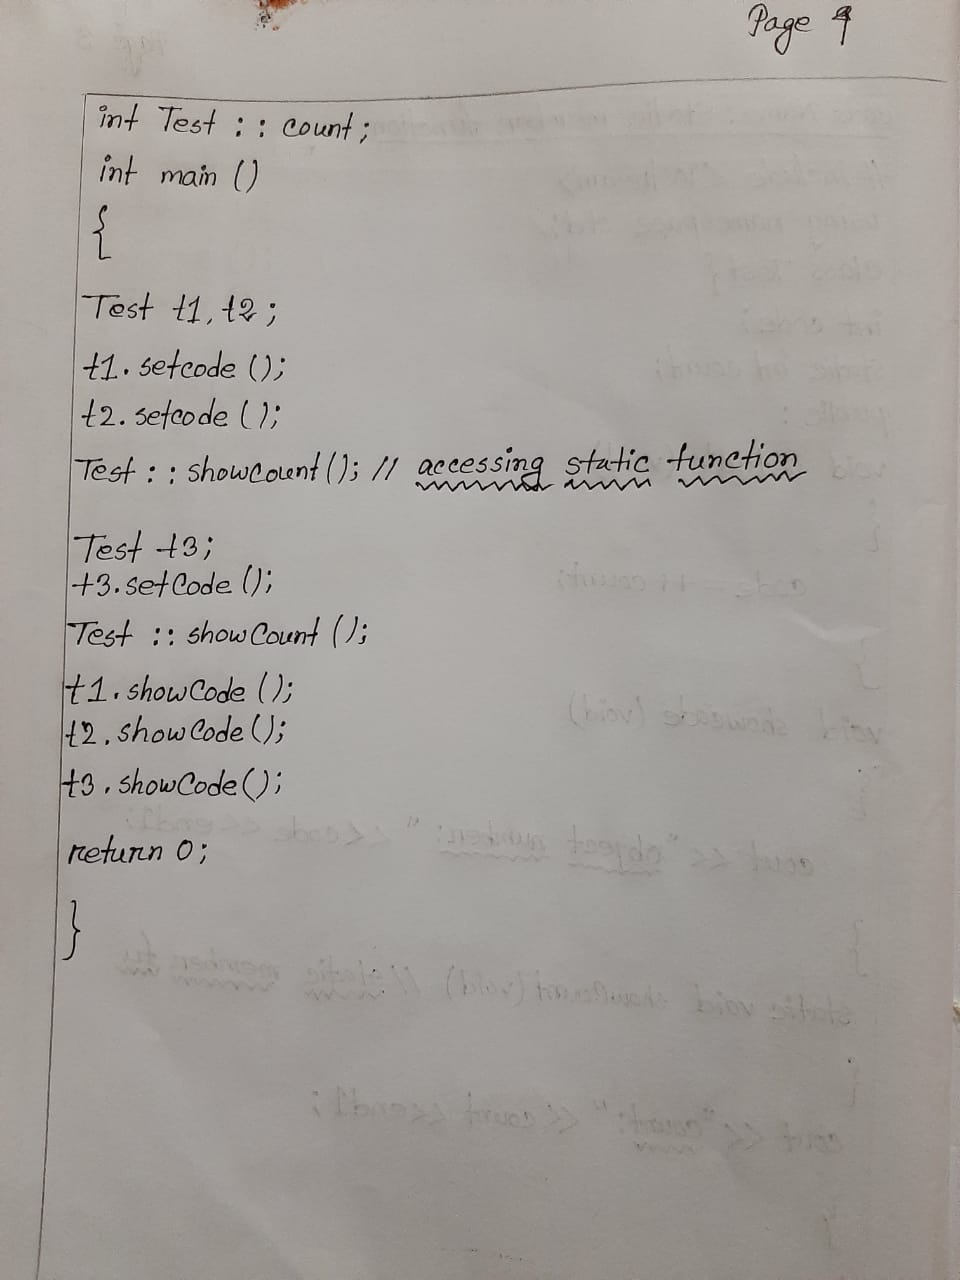 Page 4
int Test : : count;
int main ()
{
Test t1, t2 ;
t1. setcode ();
t2. setcode ();
Test : : showcount (); // accessing static function
Test t3;
t3. setCode ();
Test :: showCount ();
t1. showCode ();
t2. showCode ();
t3. showCode ();
return 0;
}